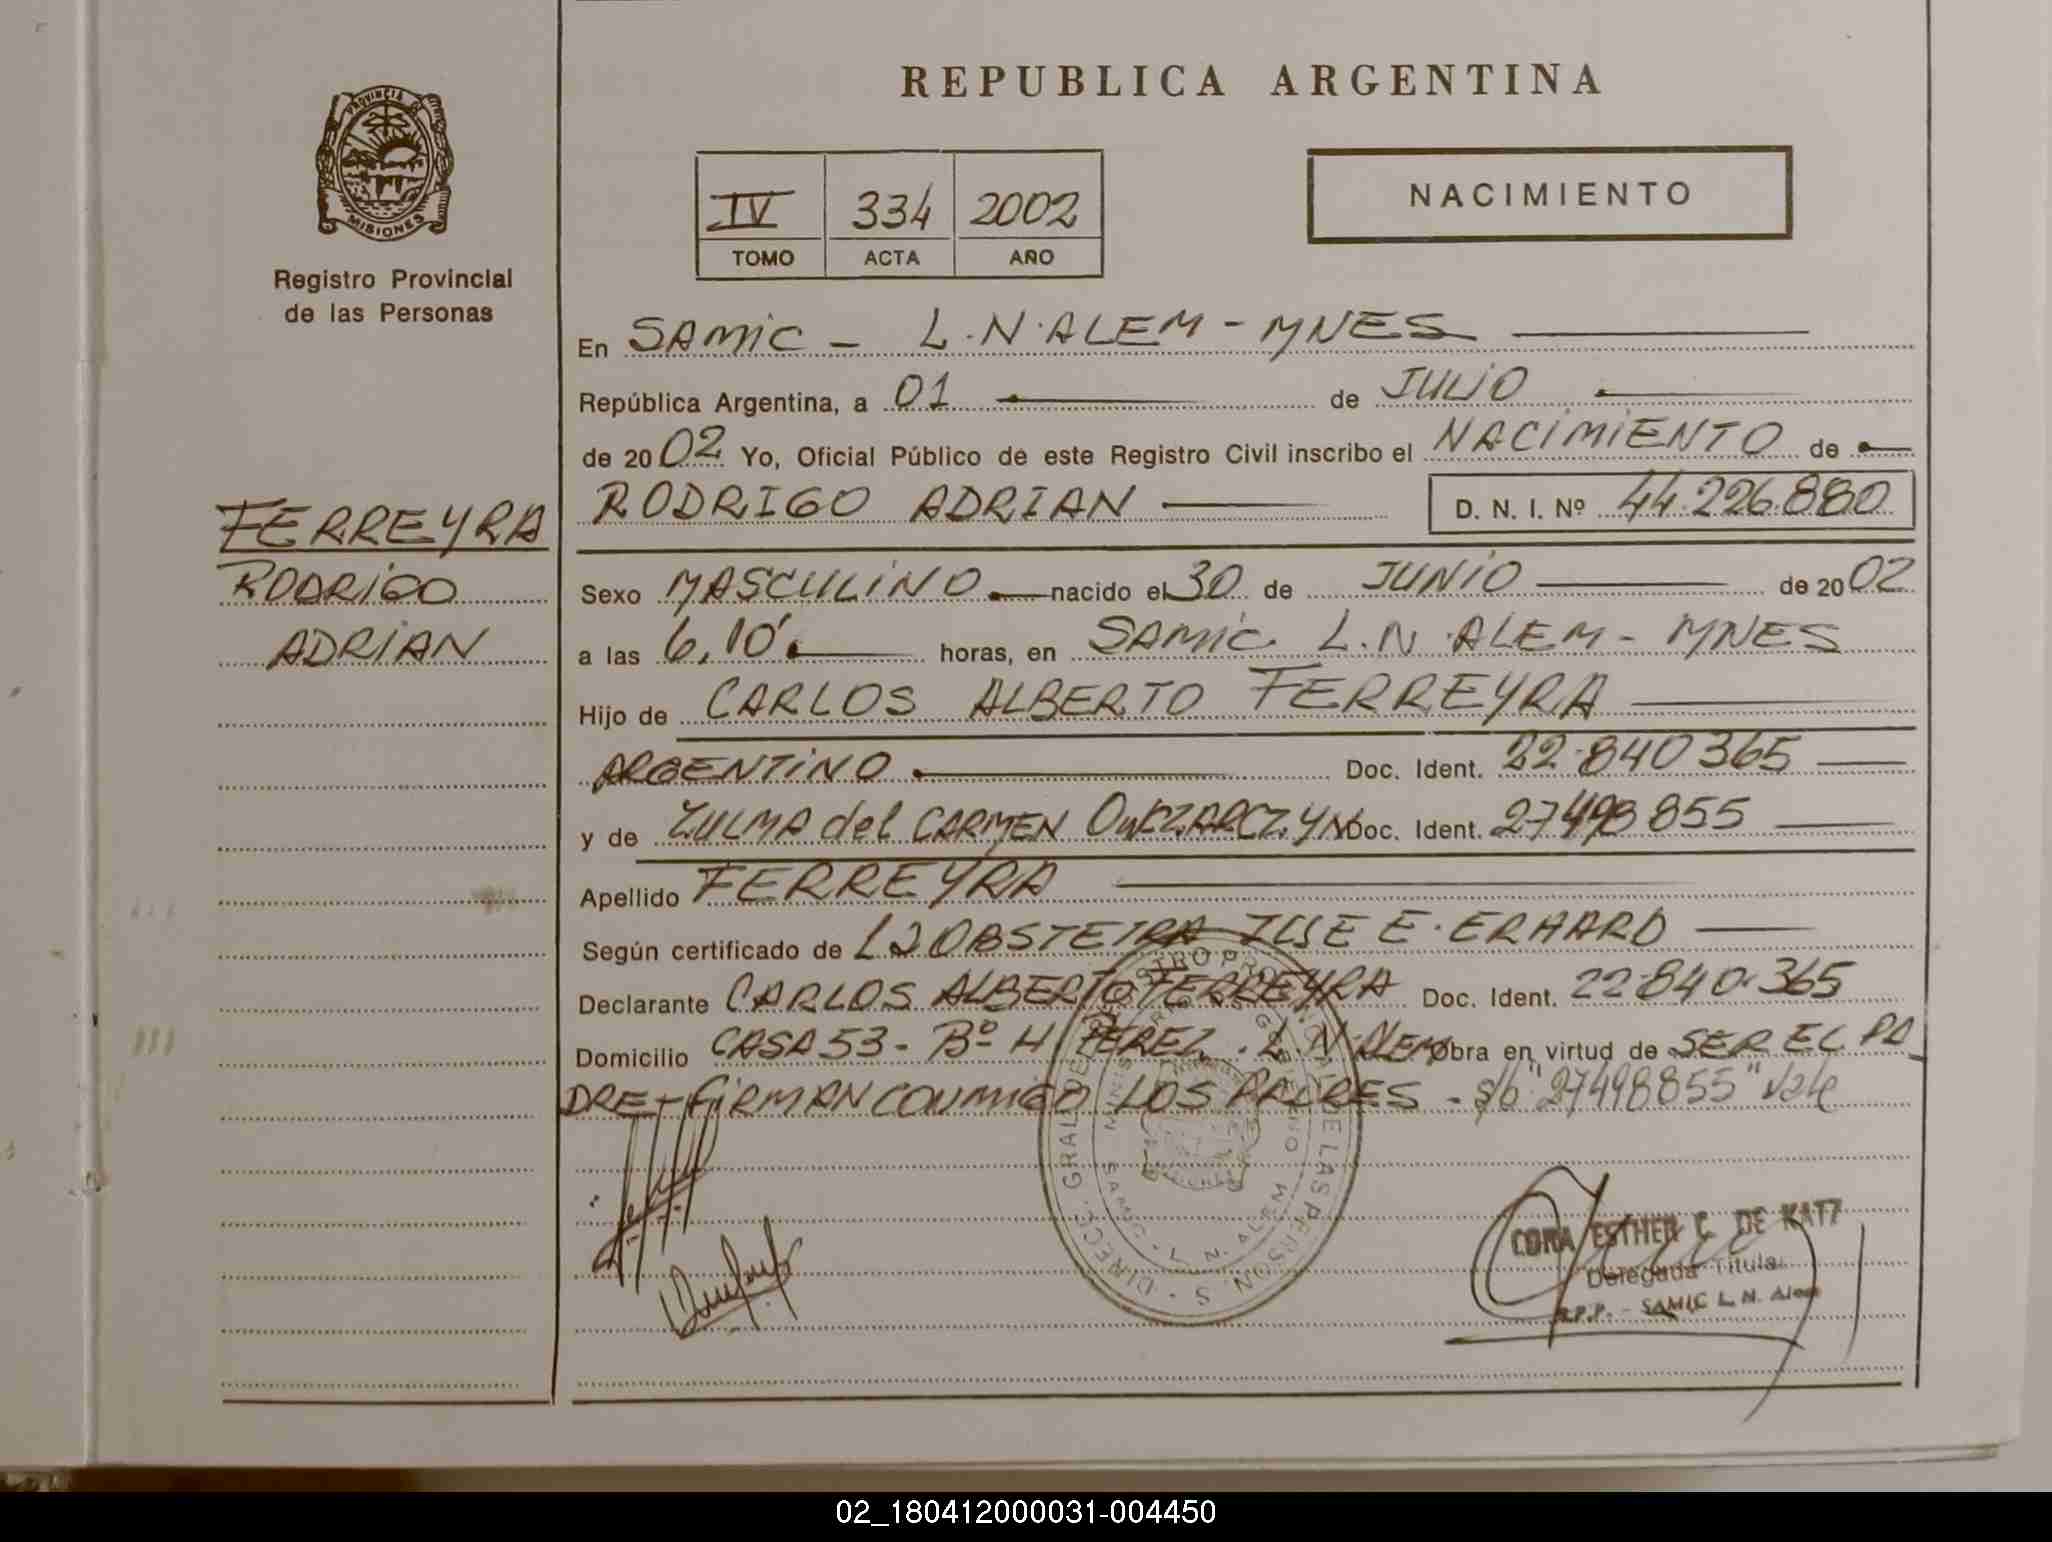 PROVINCIA D
MISIONES
Registro Provincial
de las Personas
FERREYRA
RODRIGO
ADRIAN
REPUBLICA ARGENTINA
IV 334 2002
TOMO ACTA AÑO
NACIMIENTO
En SAMIC - L.N.ALEM - MNES
República Argentina, a 01 de JULIO
de 2002 Yo, Oficial Público de este Registro Civil inscribo el NACIMIENTO de
RODRIGO ADRIAN D. N. I. Nº 44.226.880
Sexo MASCULINO nacido el 30 de JUNIO de 2002
a las 6,10' horas, en SAMIC L.N. ALEM - MNES
Hijo de CARLOS ALBERTO FERREYRA
ARGENTINO Doc. Ident. 22.840365
y de ZULMA del CARMEN Doc. Ident. 27498855
Apellido FERREYRA
Según certificado de OBSTETRA ILSE E. ERHARD
Declarante CARLOS ALBERTO FERREYRA Doc. Ident. 22.840.365
Domicilio CASA 53 - Bº H PEREZ. L.N. ALEM Obra en virtud de SER EL PA
DRE - FIRMAN CONMIGO LOS PADRES - s/b "27498855" Vale
CORA ESTHER C. DE KATZ
Delegada Titular
R.P.P. - SAMIC L. N. Alem
02_180412000031-004450